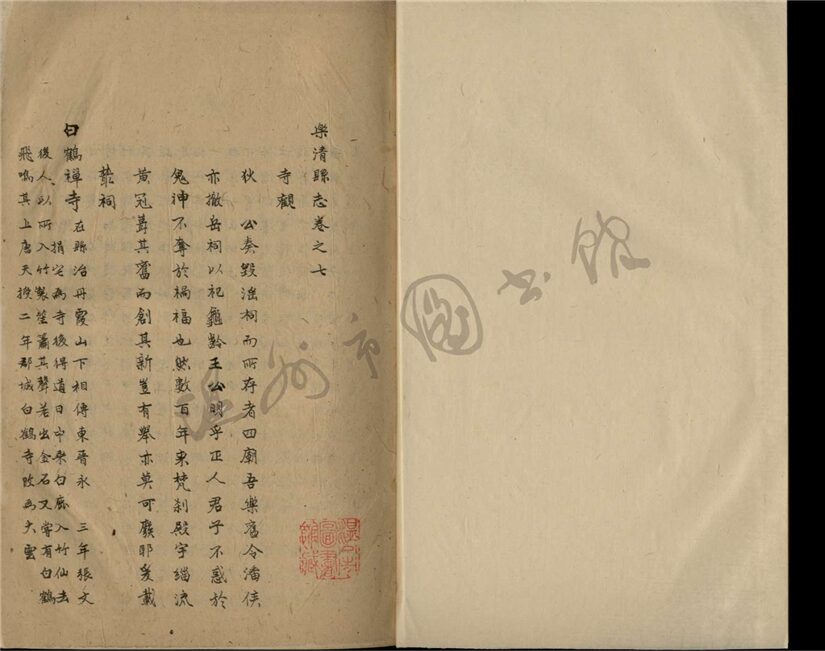 樂清縣志卷之七
寺觀
狄 公奏毀滛祠而所存者四廟吾樂舊令潘侯
亦撤岳祠以祀龜齡王公明乎正人君子不惑於
鬼神不奪於禍福也然數百年來梵刹殿宇緇流
黃冠葺其舊而創其新豈有舉亦莫可廢耶爰載
叢祠
白鶴禪寺在縣治丹霞山下相傳東晋永 三年張文
捐宅為寺後得道日中乘白鹿入竹仙去
後人以所入竹製笙簫其聲若出金石又嘗有白鶴
飛鳴其上唐天授二年郡城白鶴寺改為大雲
溫州市圖書館